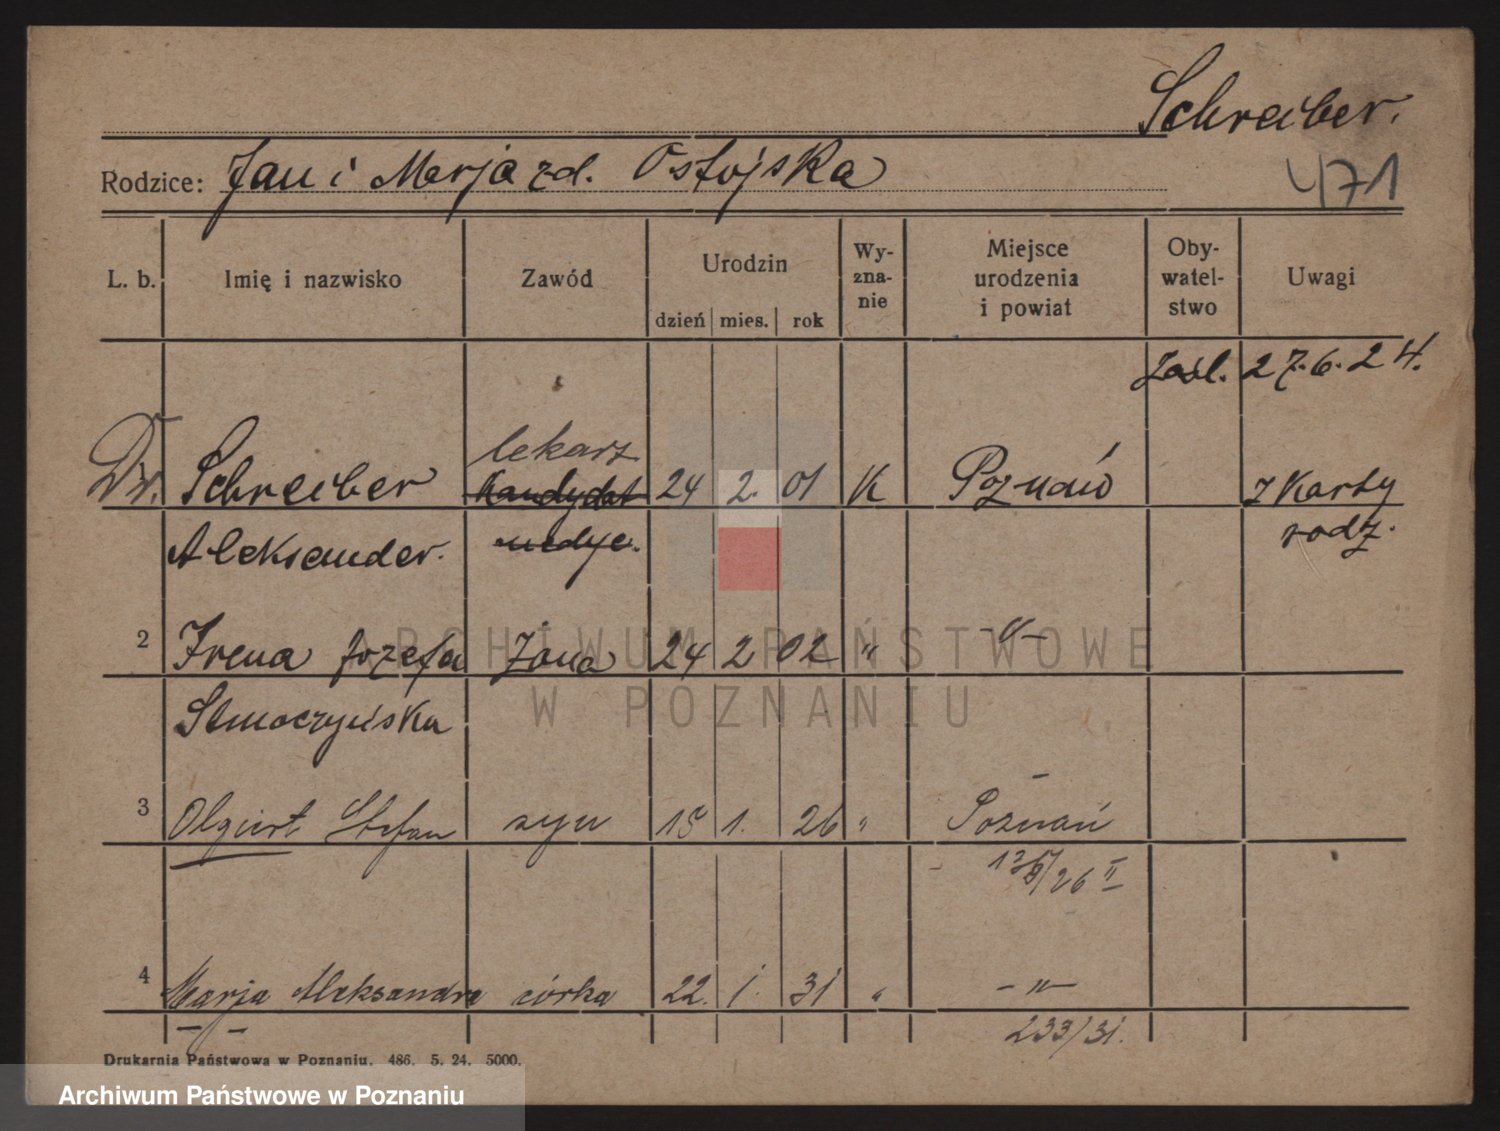 Schreiber.
Rodzice: Jan i Marja zd. Ostojska
471
L. b. Imię i nazwisko Zawód Urodzin Wy-zna-nie Miejsce urodzenia i powiat Oby-watel-stwo Uwagi
dzień mies. rok
zaśl. 27.6.24.
lekarz
Dr. Schreiber Kandydat 24 2. 01 K Poznań z Karty
Aleksander. medyc. rodz.
2 Irena Józefa żona 24 2 02 " -"-
Smoczyńska
3 Olgiert Stefan syn 15 1. 26 " Poznań
/26 II
4 Marja Aleksandra córka 22. 1. 31 " -"-
233/31.
Drukarnia Państwowa w Poznaniu. 486. 5. 24. 5000.
ARCHIWUM PAŃSTWOWE
W POZNANIU
Archiwum Państwowe w Poznaniu